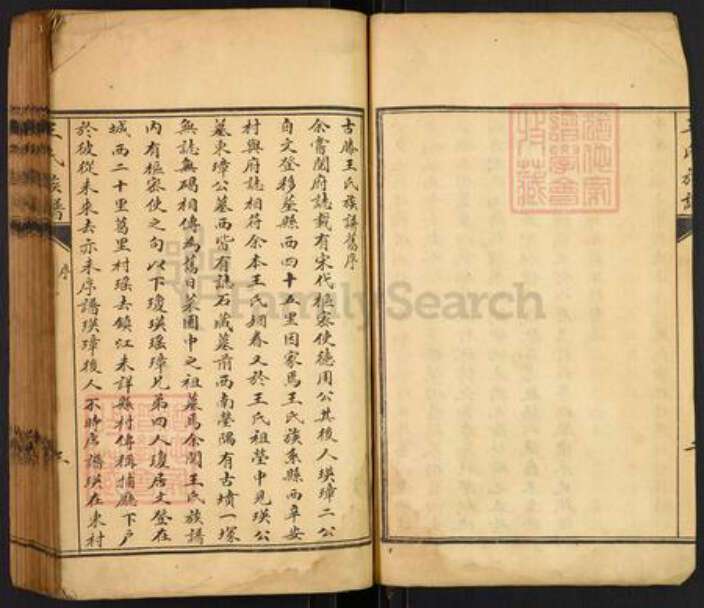 古勝王氏族譜舊序
余嘗閱府誌載有宋代樞密使德用公其後人瑛璋二公
自文登移葬縣西四十五里因家焉王氏族系縣西阜安
村與府誌相符余本王氏姻眷又於王氏祖塋中見瑛公
墓東璋公墓西皆有誌石藏墓前西南塋隅有古墳一塚
無誌無碣相傳為舊日菜園中之祖墓焉余閱王氏族譜
內有樞密使之句以下瓊瑛瑤璋兄弟四人瓊居文登在
城西二十里葛里村瑤去鎮江未詳縣村俱稱捕廳下戶
於彼從未來去亦未序譜瑛璋後人不時序譜瑛在東村
王氏族譜
序
FamilySearch